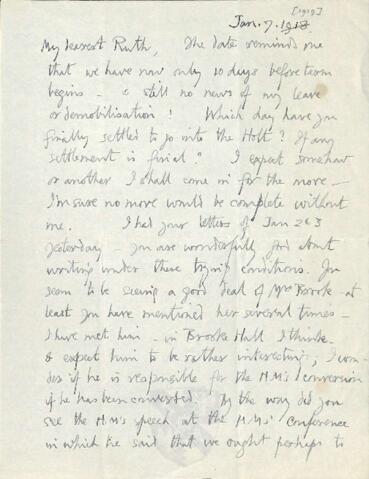 [1919]
Jan. 7. 1918.
My dearest Ruth, The date reminds me
that we have now only 10 days before term
begins – & still no news of my leave
or demobilisation! Which day have you
finally settled to go into the Holt? If any
settlement is final. I expect somehow
or another I shall come in for the move –
I'm sure no move would be complete without
me. I had your letters of Jan 2 & 3
yesterday – you are wonderfully good about
writing under these trying conditions. You
seem to be seeing a good deal of Mrs Brooke – at
least you have mentioned her several times –
I have met him – in Brooke Hall I think –
& expect him to be rather interesting; I won-
der if he is responsible for the H.M's conversion
if he has been converted. By the way did you
see the H.M's speech at the H.Ms' Conference
in which he said that we ought perhaps to